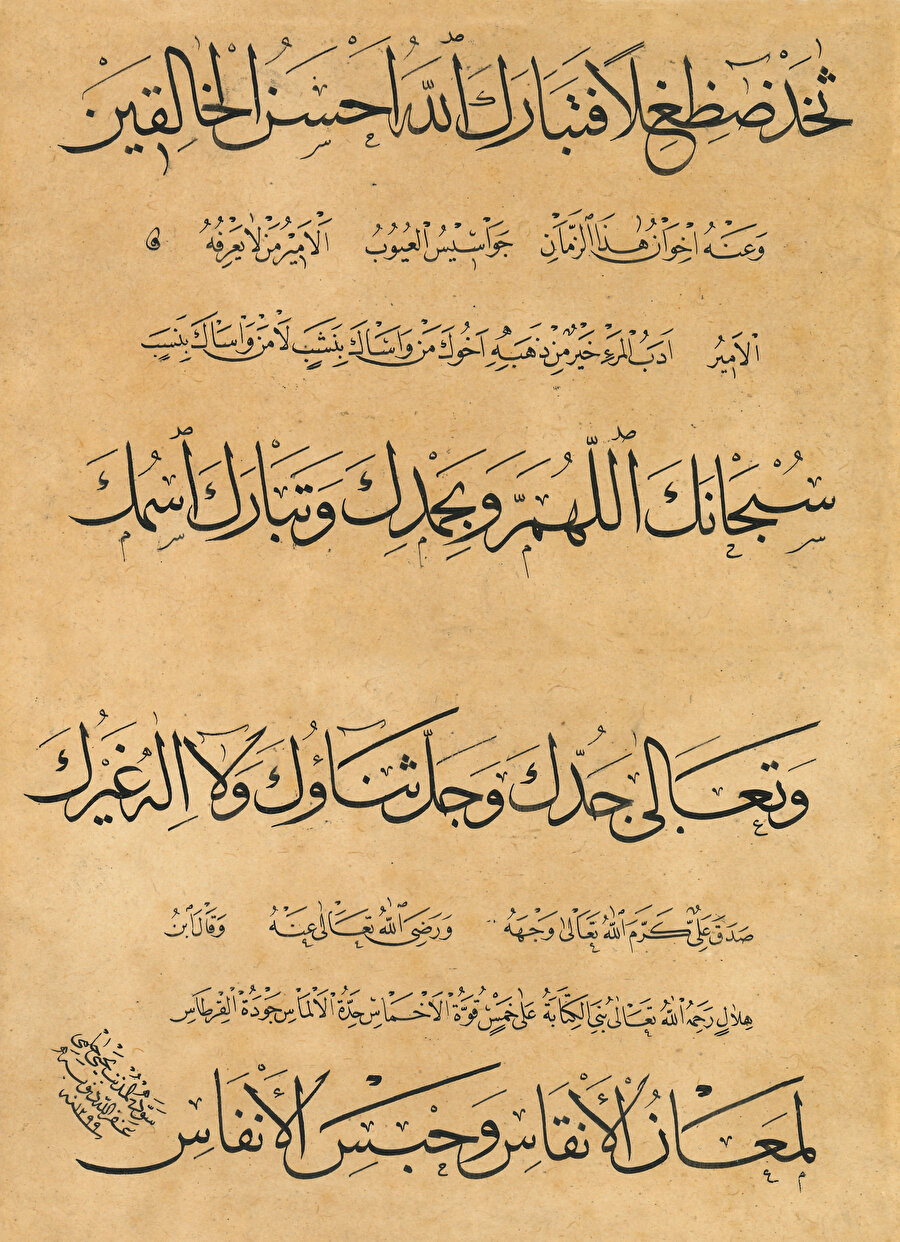 ثخذ ضظغلا فتبارك الله احسن الخالقين
وَعَنْهُ اِخْوَانُ هٰذَا الزَّمَانِ جَوَاسِيْسُ الْعُيُوْبِ اَلْاَمِيْرُ مَنْ لَا يَعْرِفُهُ
الْاَمِيْرُ اَدَبُ الْمَرْءِ خَيْرٌ مِنْ ذَهَبِهِ اَخُوْكَ مَنْ وَاسَاكَ بِنَشَبٍ لَا مَنْ وَاسَاكَ بِنَسَبٍ
سُبْحَانَكَ اللّٰهُمَّ وَبِحَمْدِكَ وَتَبَارَكَ اسْمُكَ
وَتَعَالٰى جَدُّكَ وَجَلَّ ثَنَاؤُكَ وَلَا اِلٰهَ غَيْرُكَ
صَدَقَ عَلِيٌّ كَرَّمَ اللّٰهُ تَعَالٰى وَجْهَهُ وَرَضِيَ اللّٰهُ تَعَالٰى عَنْهُ وَقَالَ ابْنُ
هِلَالٍ رَحِمَهُ اللّٰهُ تَعَالٰى بُنِيَ الْكِتَابَةُ عَلٰى خَمْسٍ قُوَّةُ الْاَخْمَاسِ حِدَّةُ الْاَلْمَاسِ جَوْدَةُ الْقِرْطَاسِ
لَمَعَانُ الْاَنْقَاسِ وَحَبْسُ الْاَنْفَاسِ
سوّده المذنب يحيى حلمي
غفر الله ذنوبه
سنه ١٢٩٩